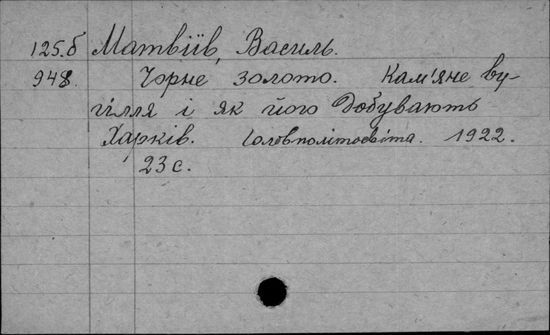 125.б Матвіїв, Василь.
948. Чорне золото. Кам'яне ву-
гілля і як його добувають
Харків. Головполітосвіта. 1922.
23 с.